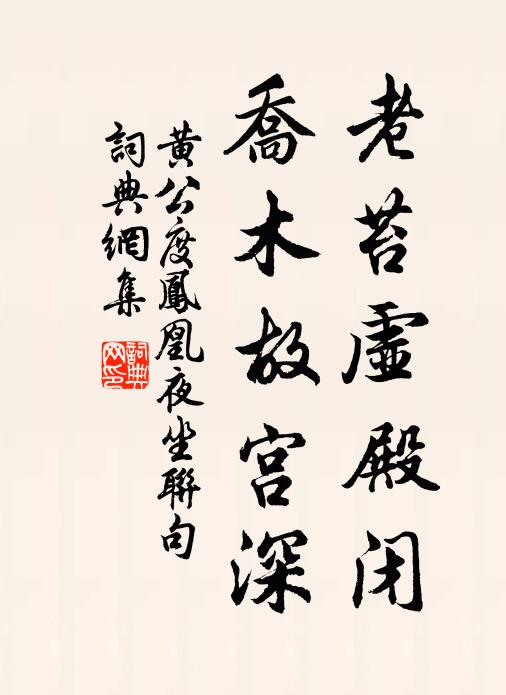 老苔虛殿闭
喬木故宫深
黄公度鳳凰夜坐聯句
詞典網集
詞典网印